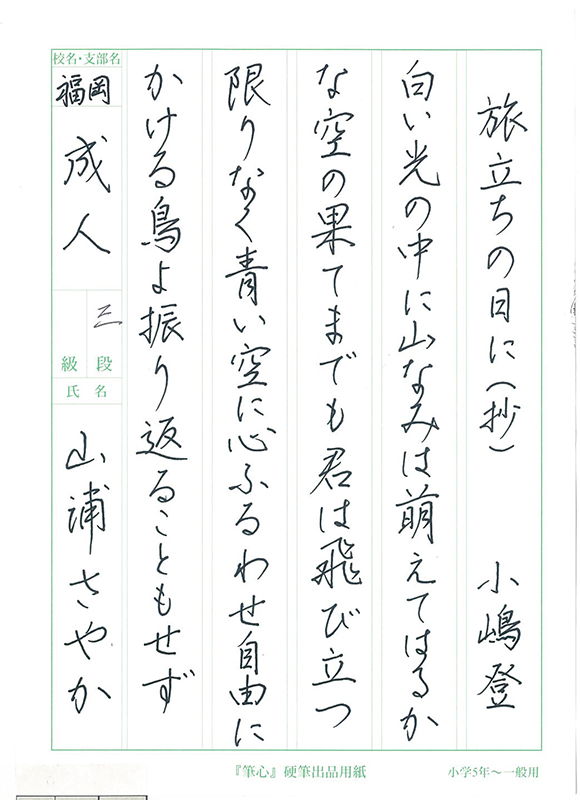 旅立ちの日に（抄）　小嶋登
白い光の中に山なみは萌えてはるか
な空の果てまでも君は飛び立つ
限りなく青い空に心ふるわせ自由に
かける鳥よ振り返ることもせず
校名・支部名
福岡
成人
三
段
級
氏名
山浦さやか
『筆心』硬筆出品用紙
小学5年〜一般用